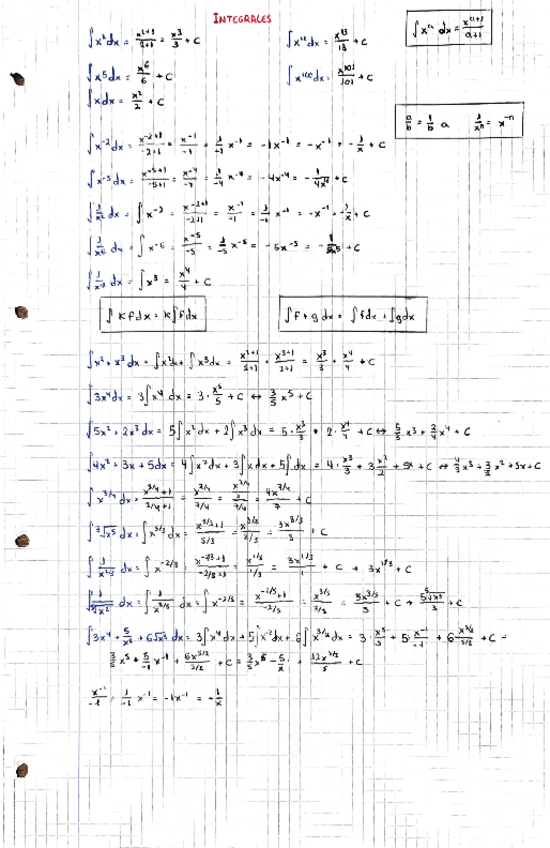 INTEGRALES
∫x² dx = x²⁺¹/2+1 = x³/3 + C
∫x¹² dx = x¹³/13 + C
∫xᵃ dx = xᵃ⁺¹/a+1
∫x⁵ dx = x⁶/6 + C
∫x¹⁰⁰ dx = x¹⁰¹/101 + C
∫x dx = x²/2 + C
a/b = 1/b a
1/xⁿ = x⁻ⁿ
∫x⁻² dx = x⁻²⁺¹/-2+1 = x⁻¹/-1 = 1/-1 x⁻¹ = -1x⁻¹ = -x⁻¹ = -1/x + C
∫x⁻⁵ dx = x⁻⁵⁺¹/-5+1 = x⁻⁴/-4 = 1/-4 x⁻⁴ = -4x⁻⁴ = -1/4x⁴ + C
∫1/x² dx = ∫x⁻² = x⁻²⁺¹/-2+1 = x⁻¹/-1 = 1/-1 x⁻¹ = -x⁻¹ = -1/x + C
∫1/x⁶ dx = ∫x⁻⁶ = x⁻⁵/-5 = 1/-5 x⁻⁵ = -5x⁻⁵ = -1/5x⁵ + C
∫1/x⁻³ dx = ∫x³ = x⁴/4 + C
∫K f dx = K∫f dx
∫f + g dx = ∫f dx + ∫g dx
∫x² + x³ dx = ∫x² dx + ∫x³ dx = x²⁺¹/2+1 + x³⁺¹/3+1 = x³/3 + x⁴/4 + C
∫3x⁴ dx = 3∫x⁴ dx = 3 · x⁵/5 + C ↔ 3/5 x⁵ + C
∫5x² + 2x³ dx = 5∫x² dx + 2∫x³ dx = 5 · x³/3 + 2 · x⁴/4 + C ↔ 5/3 x³ + 2/4 x⁴ + C
∫4x² + 3x + 5 dx = 4∫x² dx + 3∫x dx + 5∫dx = 4 · x³/3 + 3 x²/2 + 5x + C ↔ 4/3 x³ + 3/2 x² + 5x + C
∫x³ᐟ⁴ dx = x³ᐟ⁴⁺¹/3/4+1 = x⁷ᐟ⁴/7/4 = x⁷ᐟ⁴/7/4 = 4x⁷ᐟ⁴/7 + C
∫³√x⁵ dx = ∫x⁵ᐟ³ dx = x⁵ᐟ³⁺¹/5/3 = x⁸ᐟ³/8/3 = 3x⁸ᐟ³/8 + C
∫1/x²ᐟ³ dx = ∫x⁻²ᐟ³ = x⁻²ᐟ³⁺¹/-2/3+1 = x¹ᐟ³/1/3 = 3x¹ᐟ³/1 + C → 3x¹ᐟ³ + C
∫1/⁵√x² dx = ∫1/x²ᐟ⁵ dx = ∫x⁻²ᐟ⁵ = x⁻²ᐟ⁵⁺¹/-2/5 = x³ᐟ⁵/3/5 = 5x³ᐟ⁵/3 + C → 5⁵√x³/3 + C
∫3x⁴ + 5/x² + 6√x³ dx = 3∫x⁴ dx + 5∫x⁻² dx + 6∫x³ᐟ² dx = 3 · x⁵/5 + 5 · x⁻¹/-1 + 6 x⁵ᐟ²/5/2 + C =
3/5 x⁵ + 5/-1 x⁻¹ + 6x⁵ᐟ²/5/2 + C = 3/5 x⁵ - 5/x + 12x⁵ᐟ²/5 + C
x⁻¹/-1 = 1/-1 x⁻¹ = -1x⁻¹ = -1/x